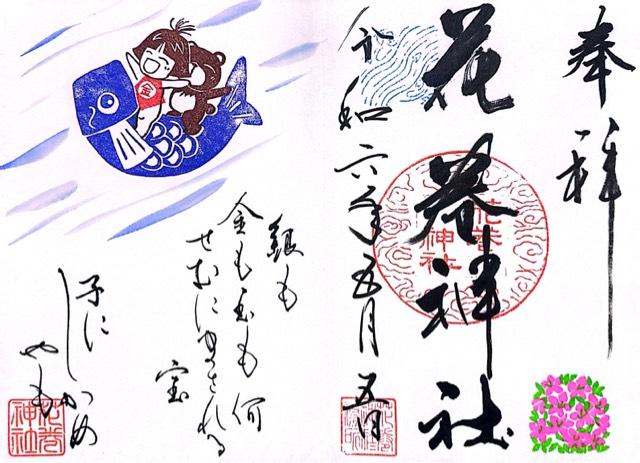 奉拝
花巻神社
花巻
神社
令和六年五月五日
金
銀も
金も玉も何
せむにまされる
宝
子に
しかめ
やも
花巻
神社